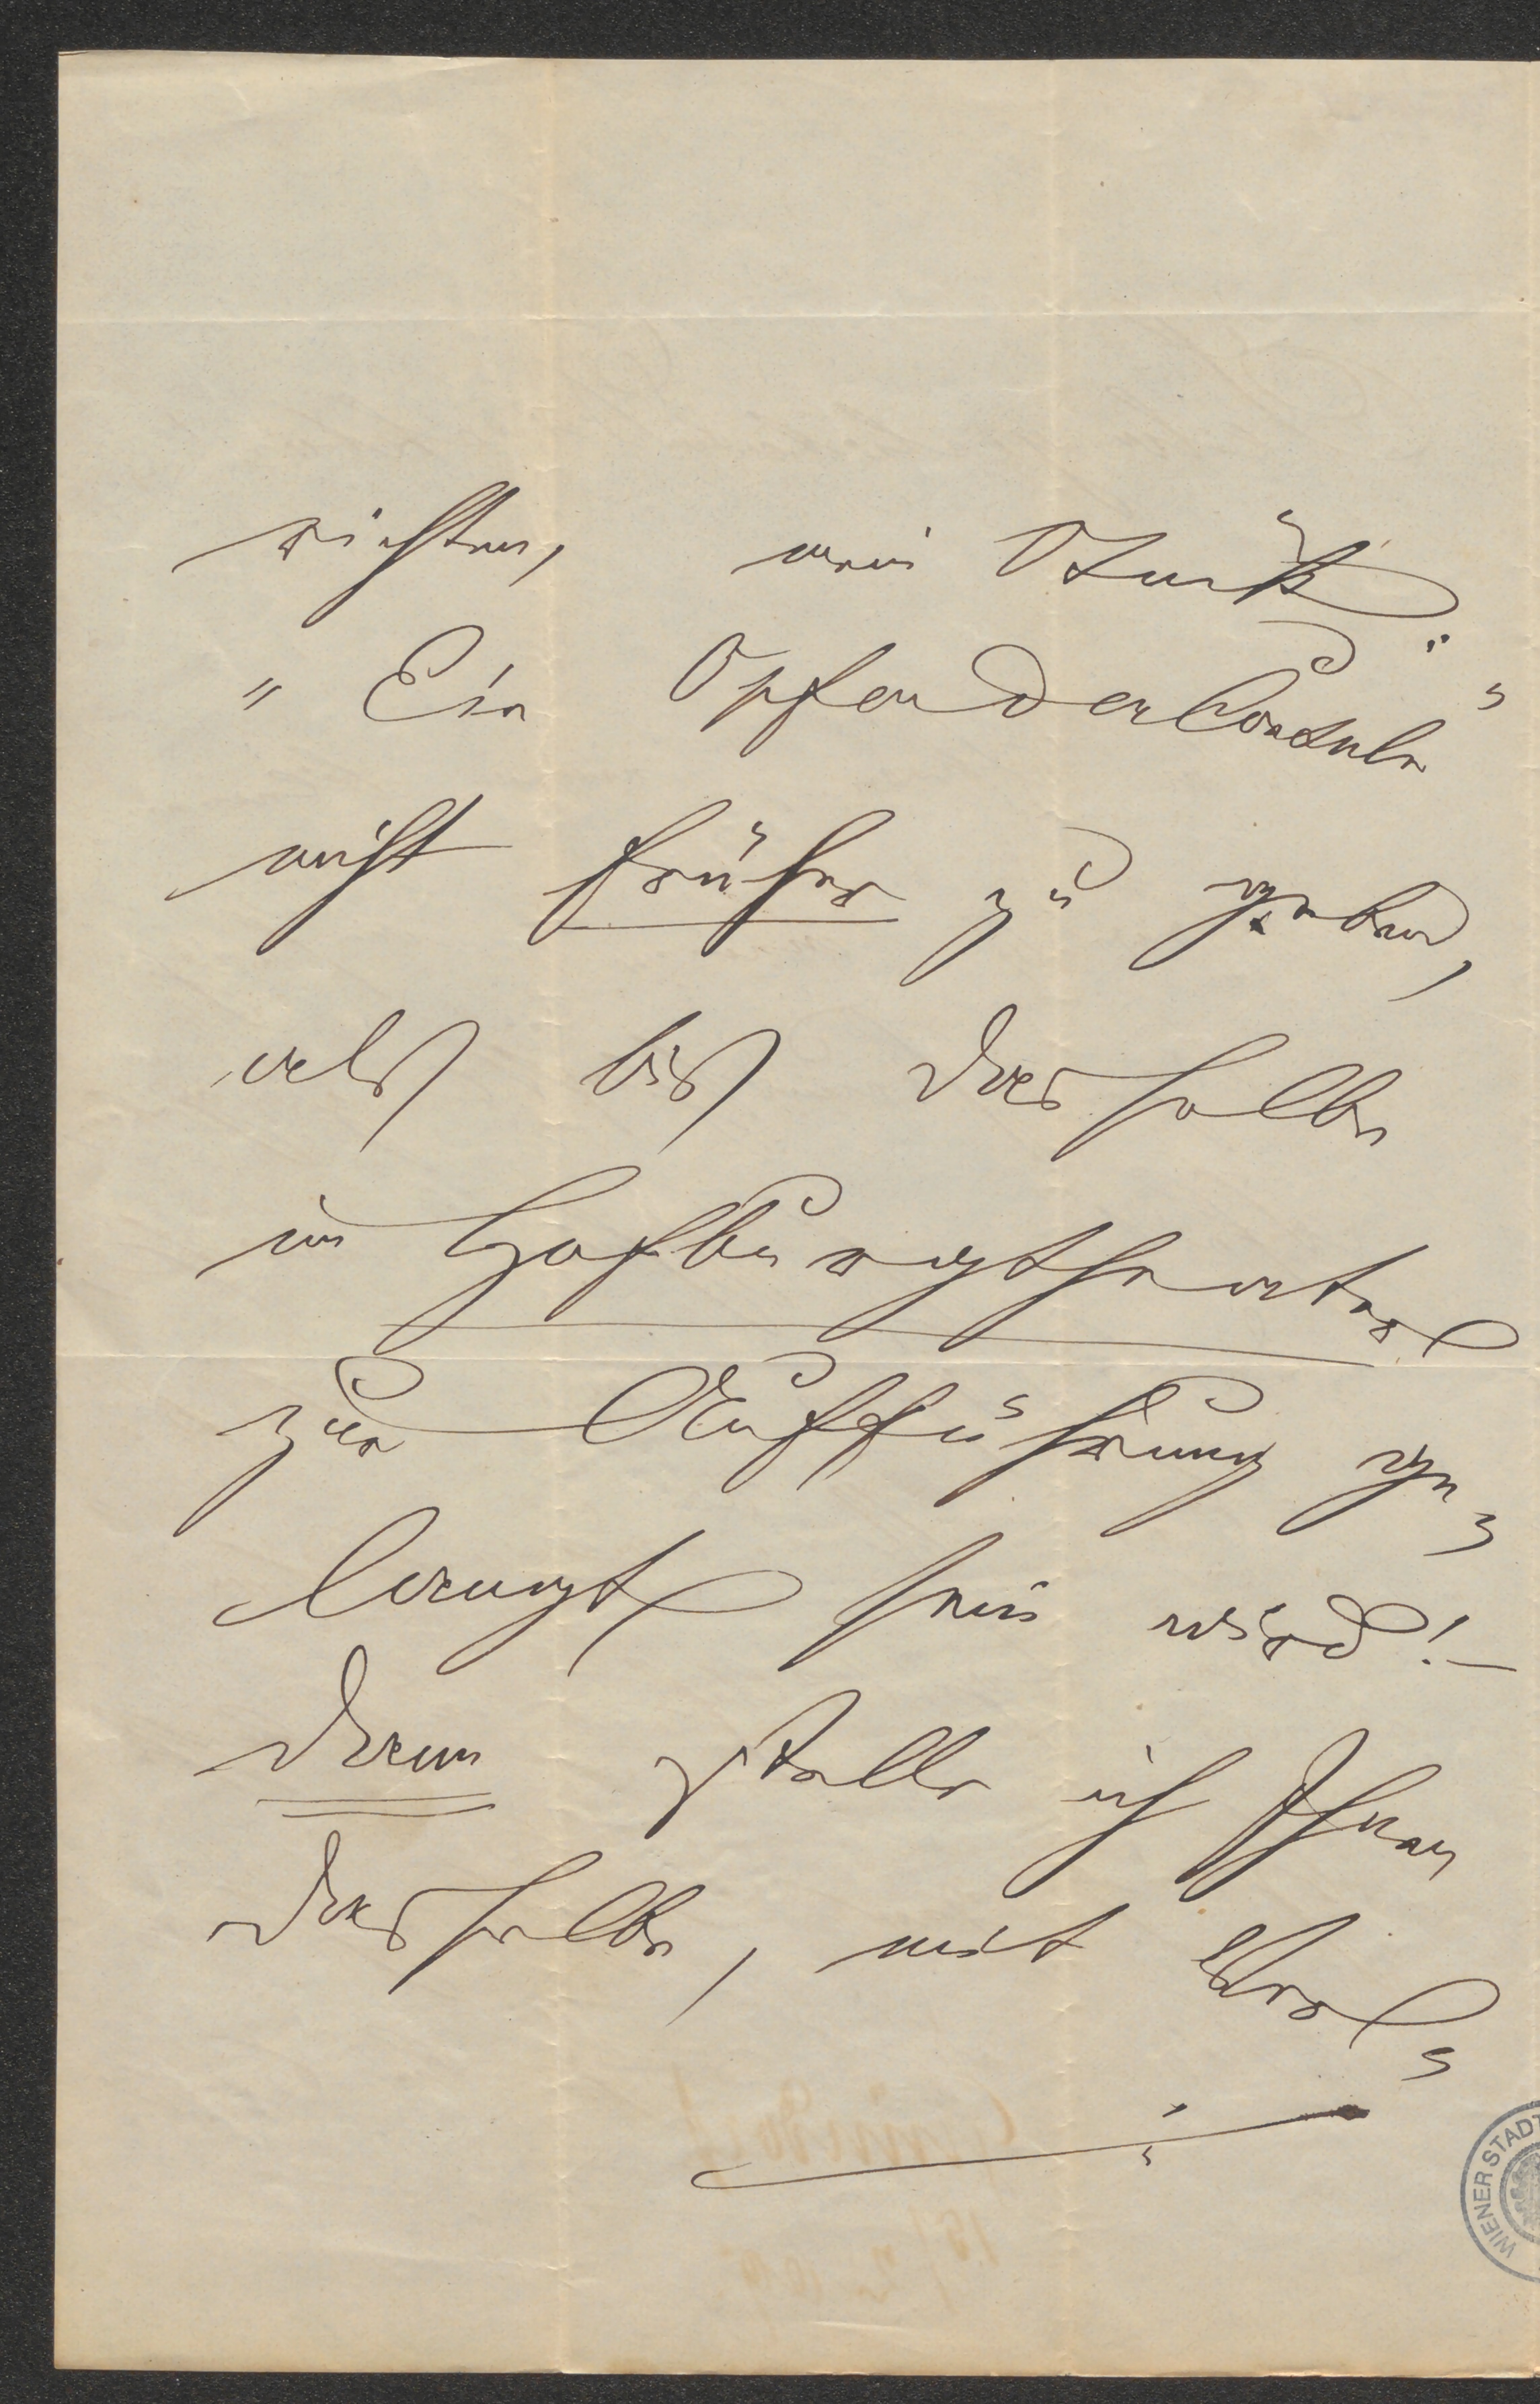 richten, mein Stück
"Ein Opfer der Consuln"
nicht früher zu geben,
als bis dasselbe
im Hofburgtheater
zur Aufführung ge-
langt sein wird! -
Dann stelle ich Ihnen
dasselbe, mit
WIENER STADT